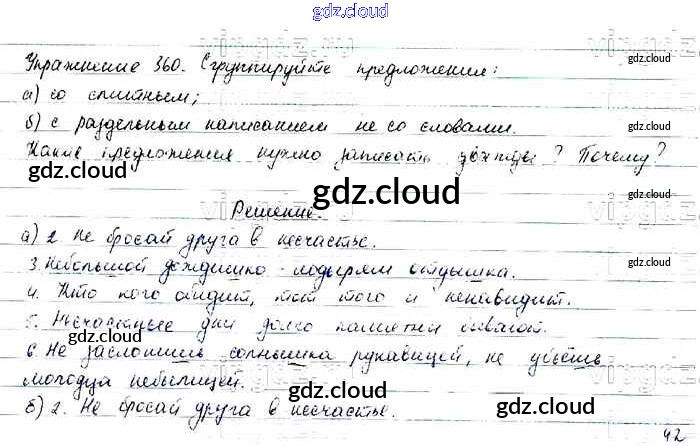 gdz.cloud
Упражнение 360. Сгруппируйте предложения:
gdz.cloud
а) со слитным;
gdz.cloud gdz.cloud
б) с раздельным написанием не со словами.
Какие предложения нужно записать дважды? Почему?
gdz.cloud gdz.cloud gdz.cloud
Решение.
а) 2. Не бросай друга в несчастье.
gdz.cloud
3. Небольшой дождишко - лодырям отдышка.
4. Кто кого обидит, тот того и ненавидит.
5. Несчастные дни долго памятны бывают.
6. Не заслонишь солнышка рукавицей, не убьёшь
gdz.cloud gdz.cloud
молодца небылицей.
gdz.cloud
б) 2. Не бросай друга в несчастье.
gdz.cloud
42